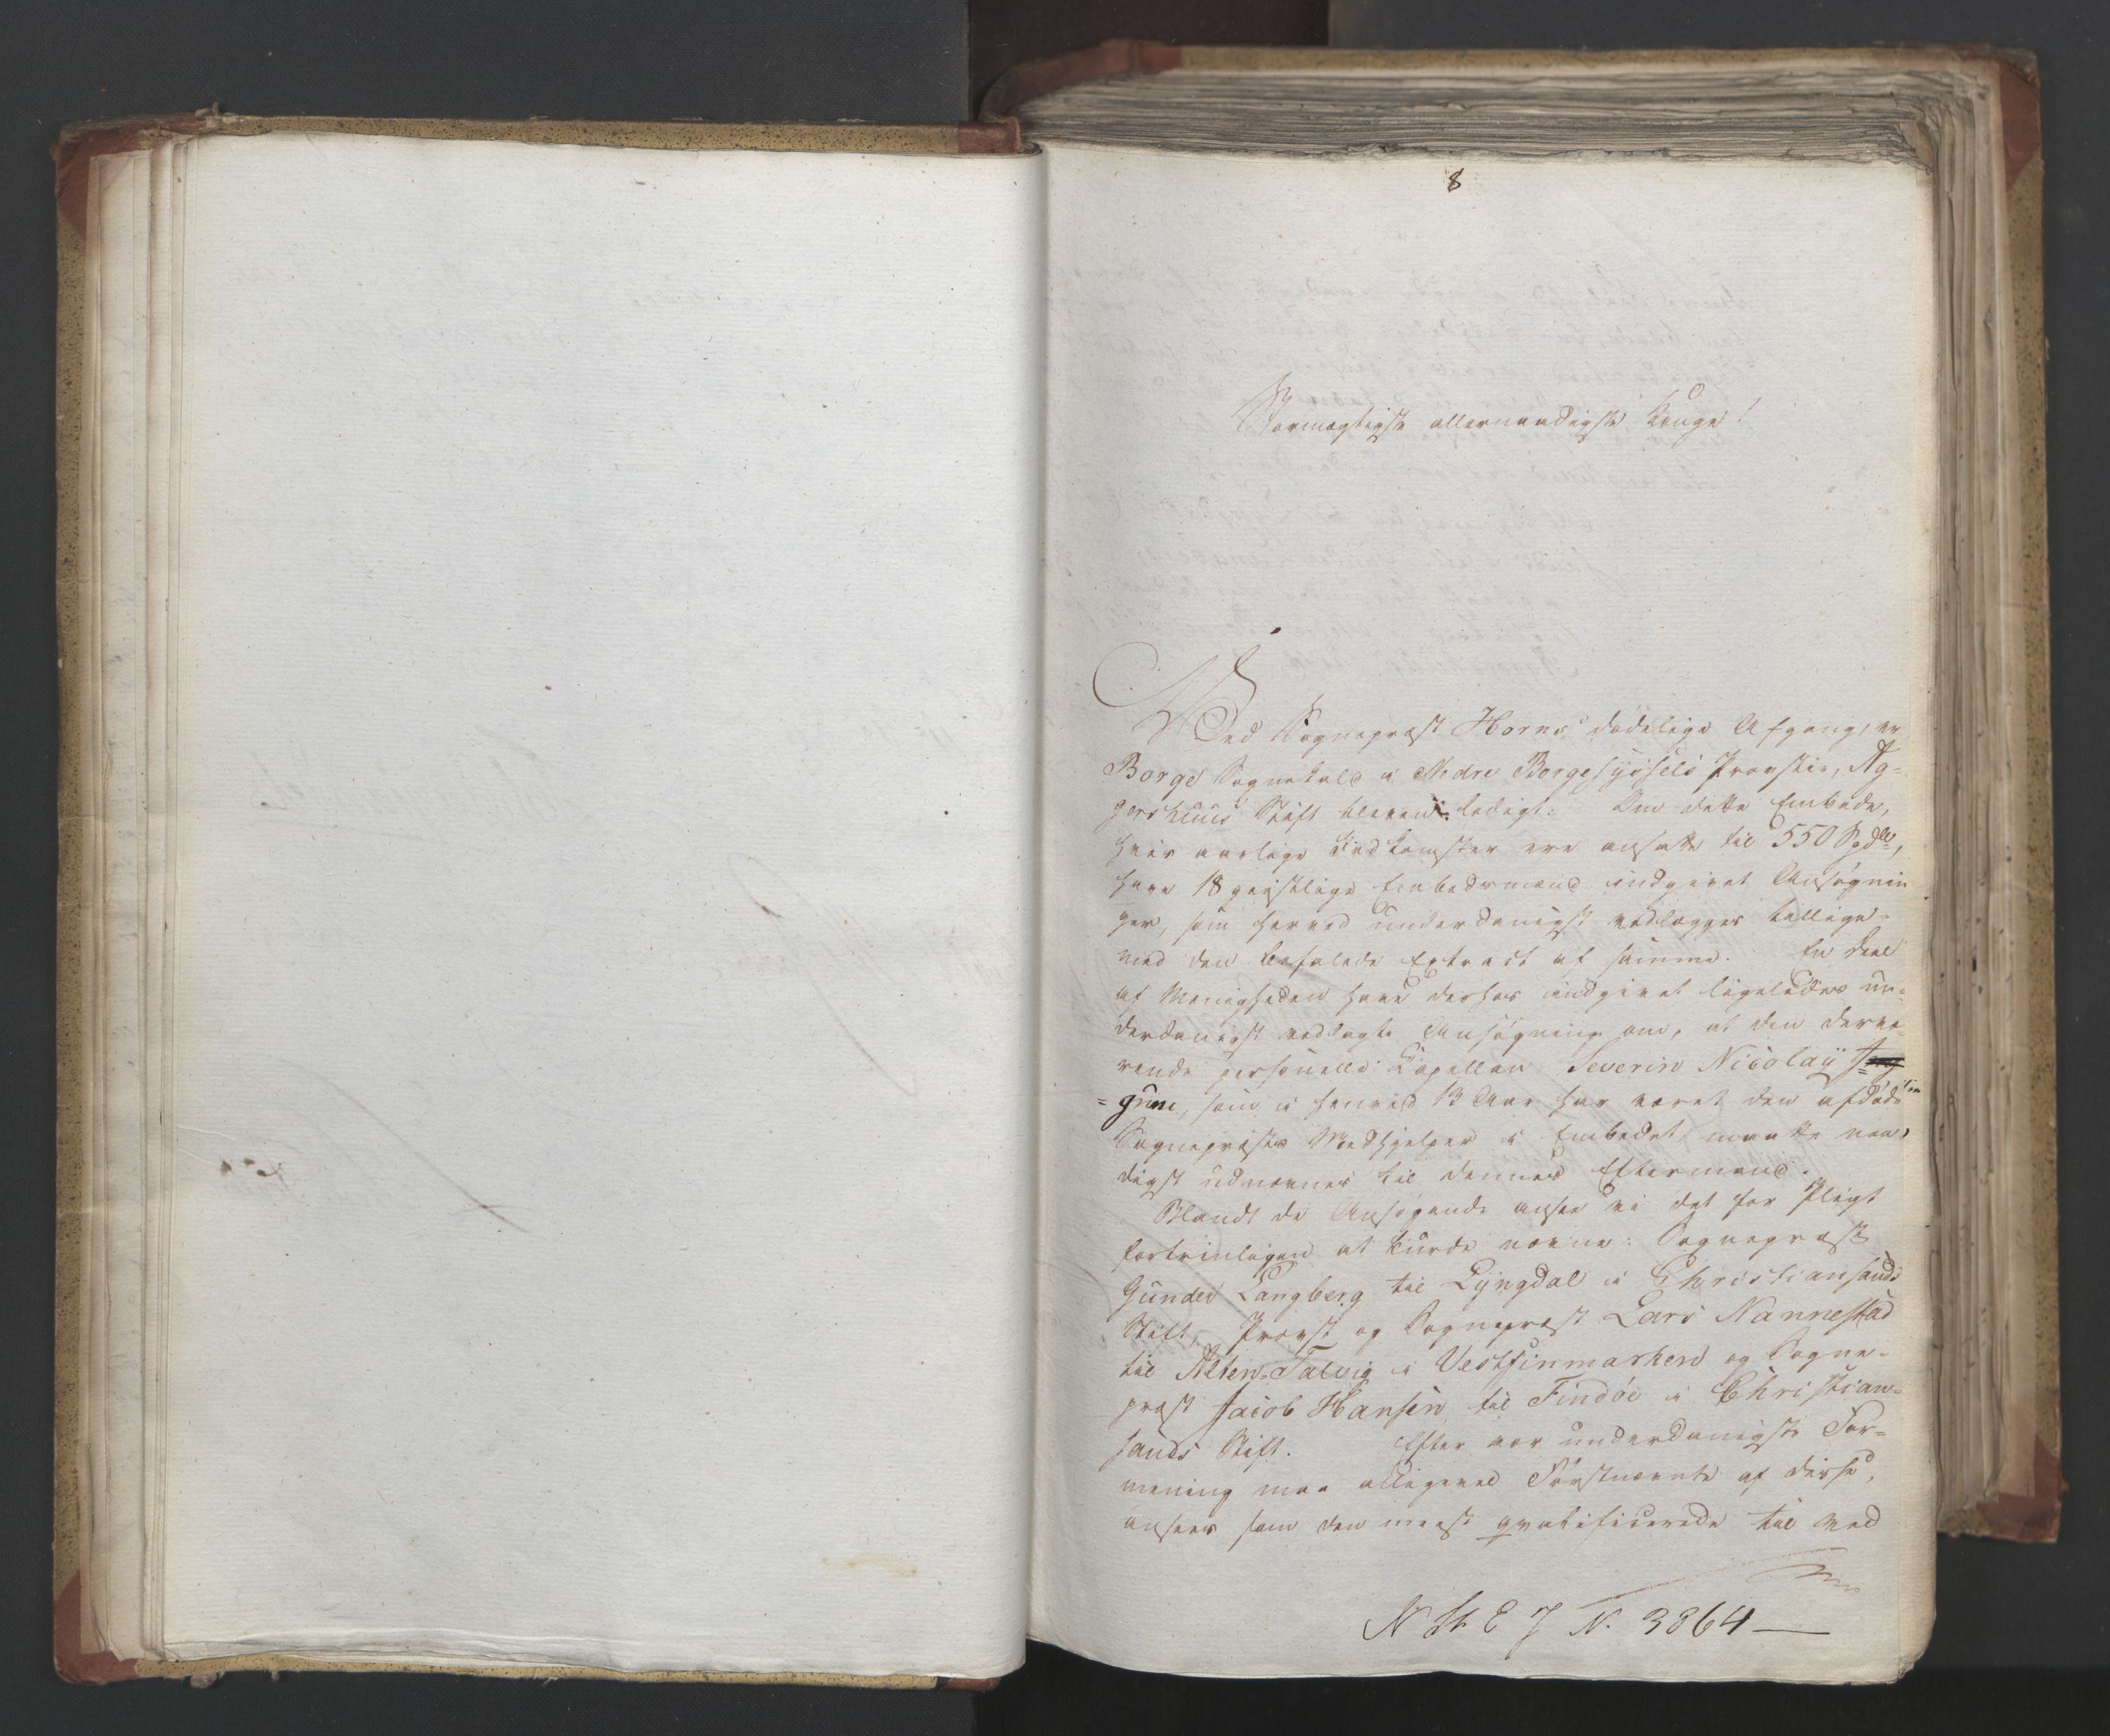 8
Stormægtigste allernaadigste Konge!
Ved Sognepræst Horns dødelige Afgang, er
Borge Sognekald i Nedre Borgesyssels Provstie, Ag=
gershuus Stift bleven ledigt. Om dette Embede,
hvis aarlige Indkomster ere ansatte til 550 Spdlr,
have 18 geistlige Embedsmænd indgivet Ansøgnin
ger, som herved underdanigst vedlægges tillige=
med den befalede Extract af samme. En Deel
af Menigheden have derhos indgivet ligeledes un=
derdanigst vedlagte Ansøgning om, at den dervæ
rende personelle Capellan Severin Nicolaij
som i henved 13 Aar har været den afdøde
Sognepræsts Medhjelper i Embedet, maatte naa=
digst udnævnes til dennes Eftermand.
Blandt de Ansøgende ansee vi det for Pligt
fortrinligen at burde nævne: Sognepræst
Gunder Langberg til Lyngdal i Christiansands
Stift, Provst og Sognepræst Lars Nannestad
til Alten-Talvig i Vestfinmarken og Sogne=
præst Jacob Hansen til Findøe i Christian=
sands Stift. Efter vor underdanigste For=
mening maa alligevel Førstnævnte af disse,
ansees som den meest qvalificerede til ved
N. 3864